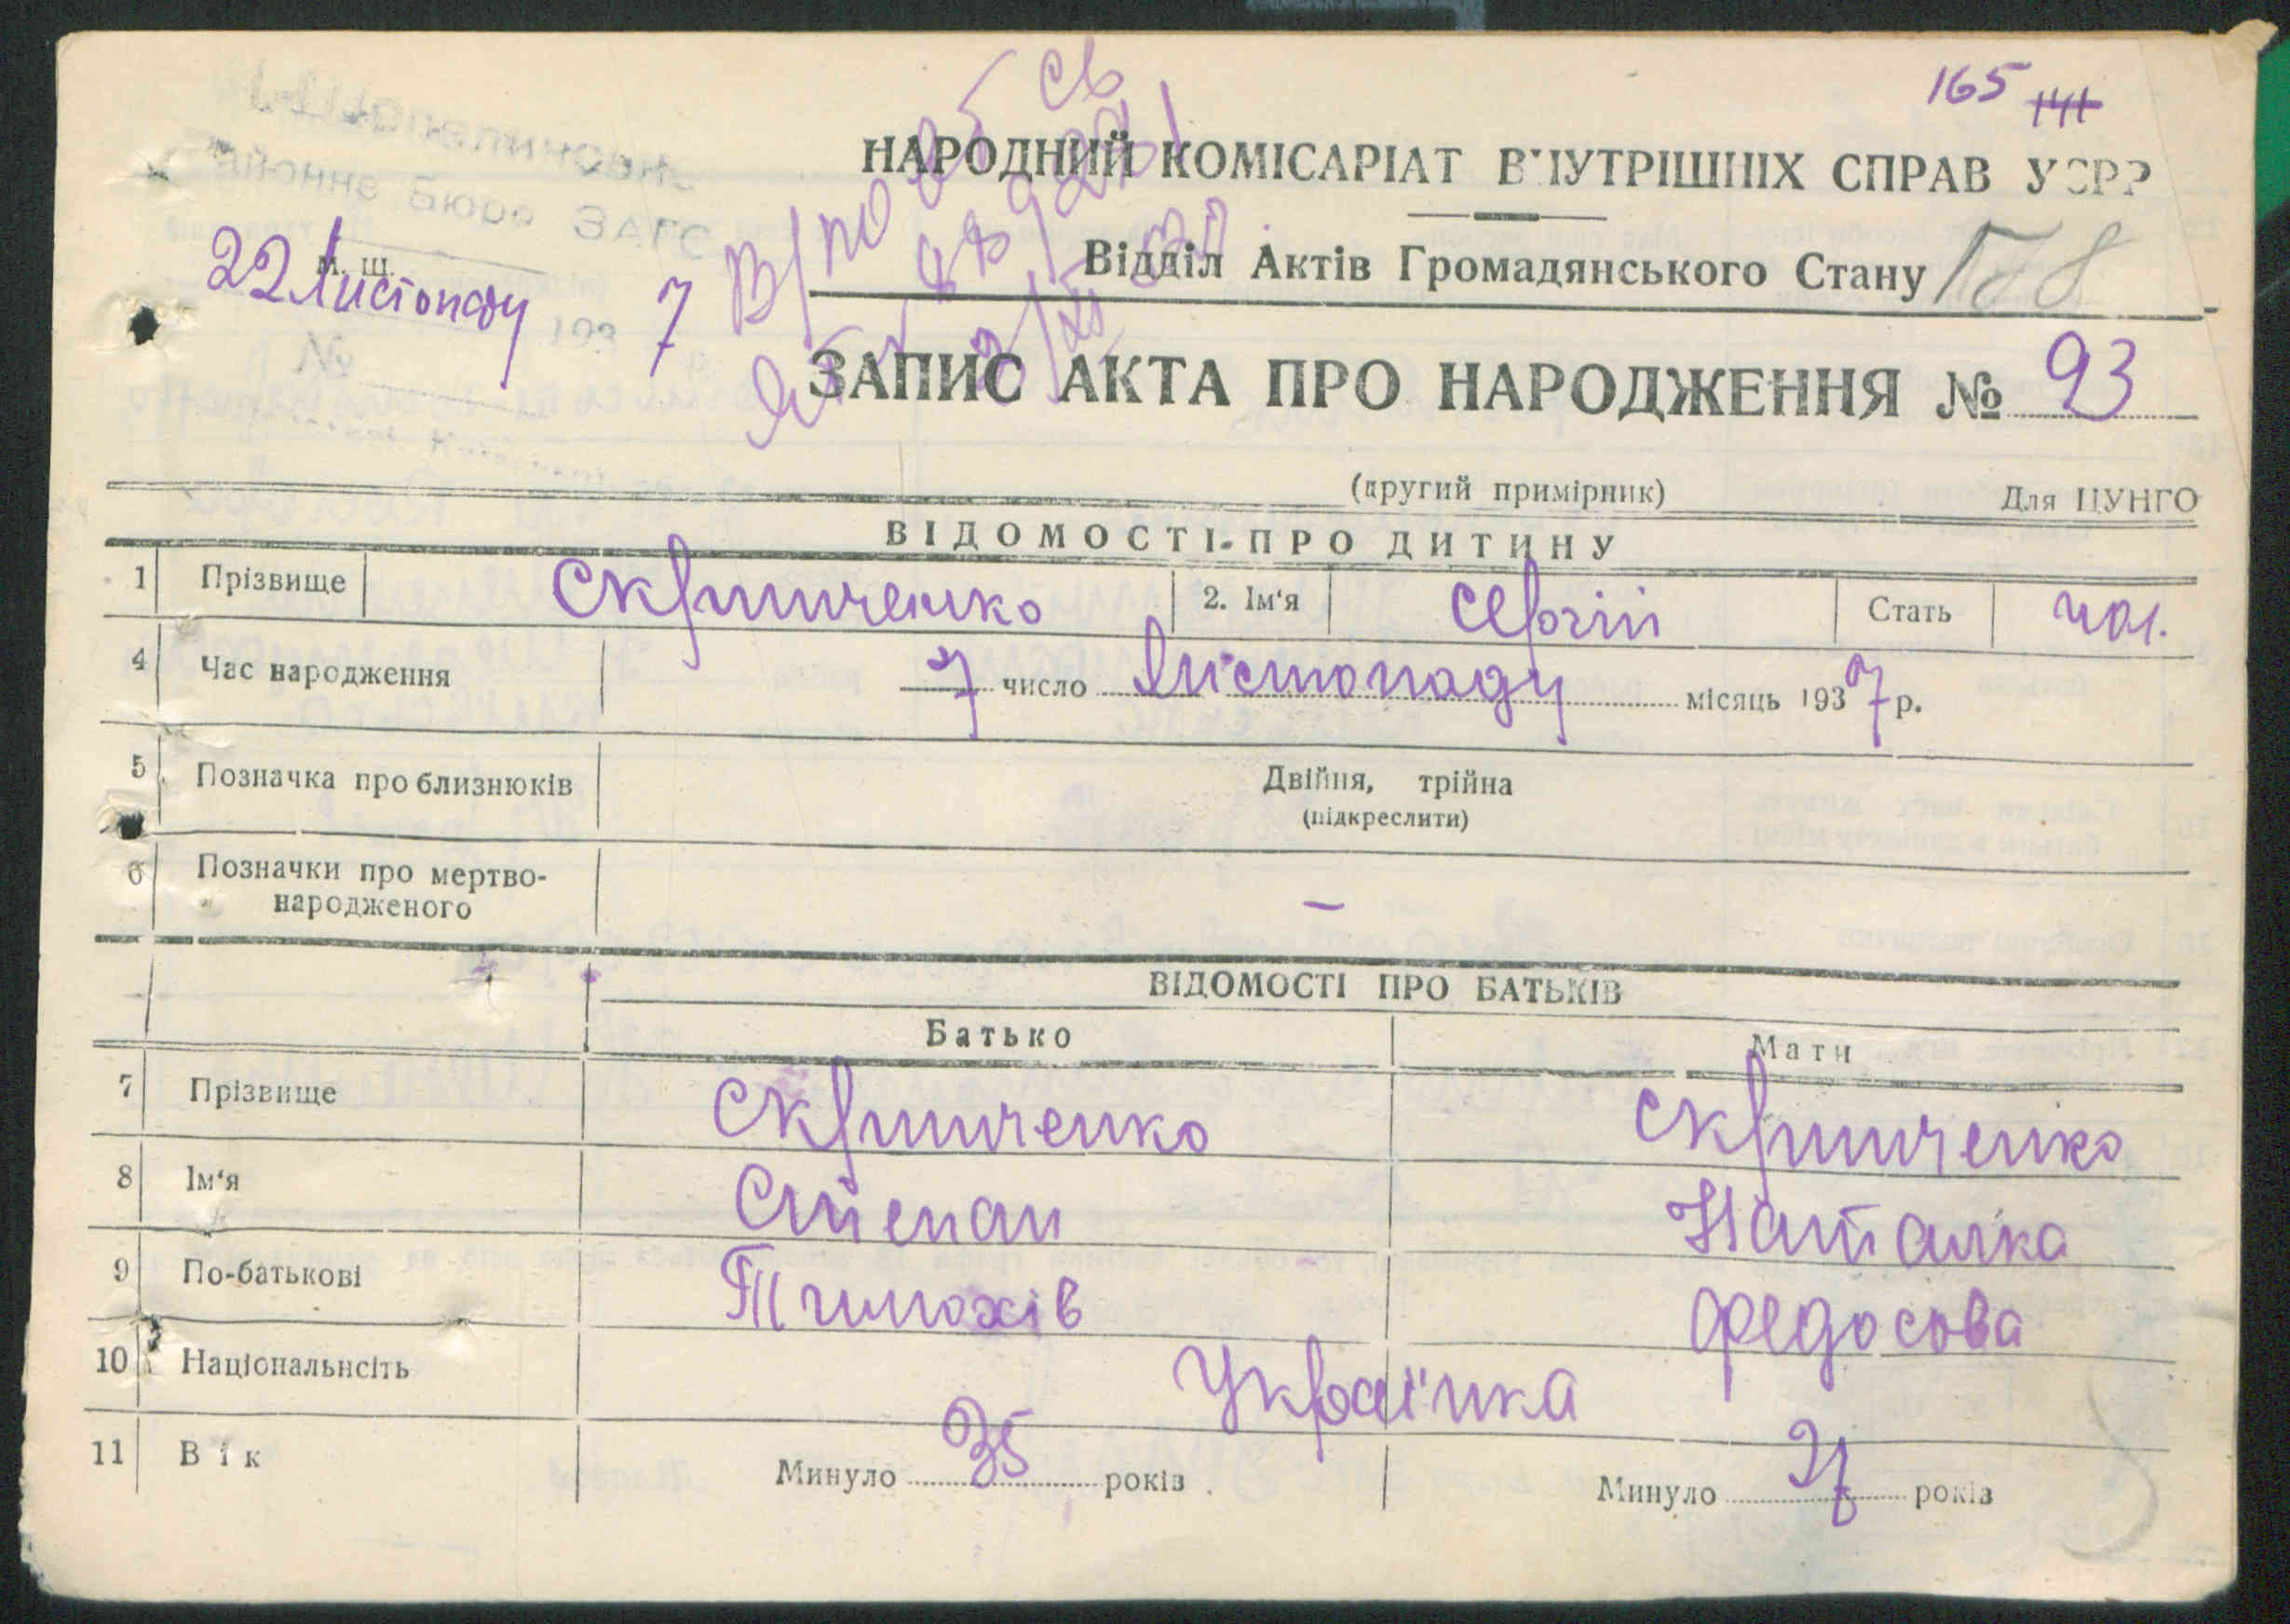 165 141
НАРОДНИЙ КОМІСАРІАТ ВНУТРІШНІХ СПРАВ УСРР
Відділ Актів Громадянського Стану 178
М. Ш.
22 Листопаду 1937
ЗАПИС АКТА ПРО НАРОДЖЕННЯ № 93
(другий примірник) Для ЦУНГО
ВІДОМОСТІ ПРО ДИТИНУ
1 Прізвище Скрипиченко 2. Ім'я Сергій Стать чол.
4 Час народження 7 число Листопаду місяць 1937 р.
5 Позначка про близнюків Двійня, трійна
(підкреслити)
6 Позначки про мертво-
народженого —
ВІДОМОСТІ ПРО БАТЬКІВ
Батько Мати
7 Прізвище Скрипиченко Скрипиченко
8 Ім'я Степан Наталка
9 По-батькові Тимохів Федосова
10 Національнсіть Українка
11 Вік Минуло 35 років Минуло років